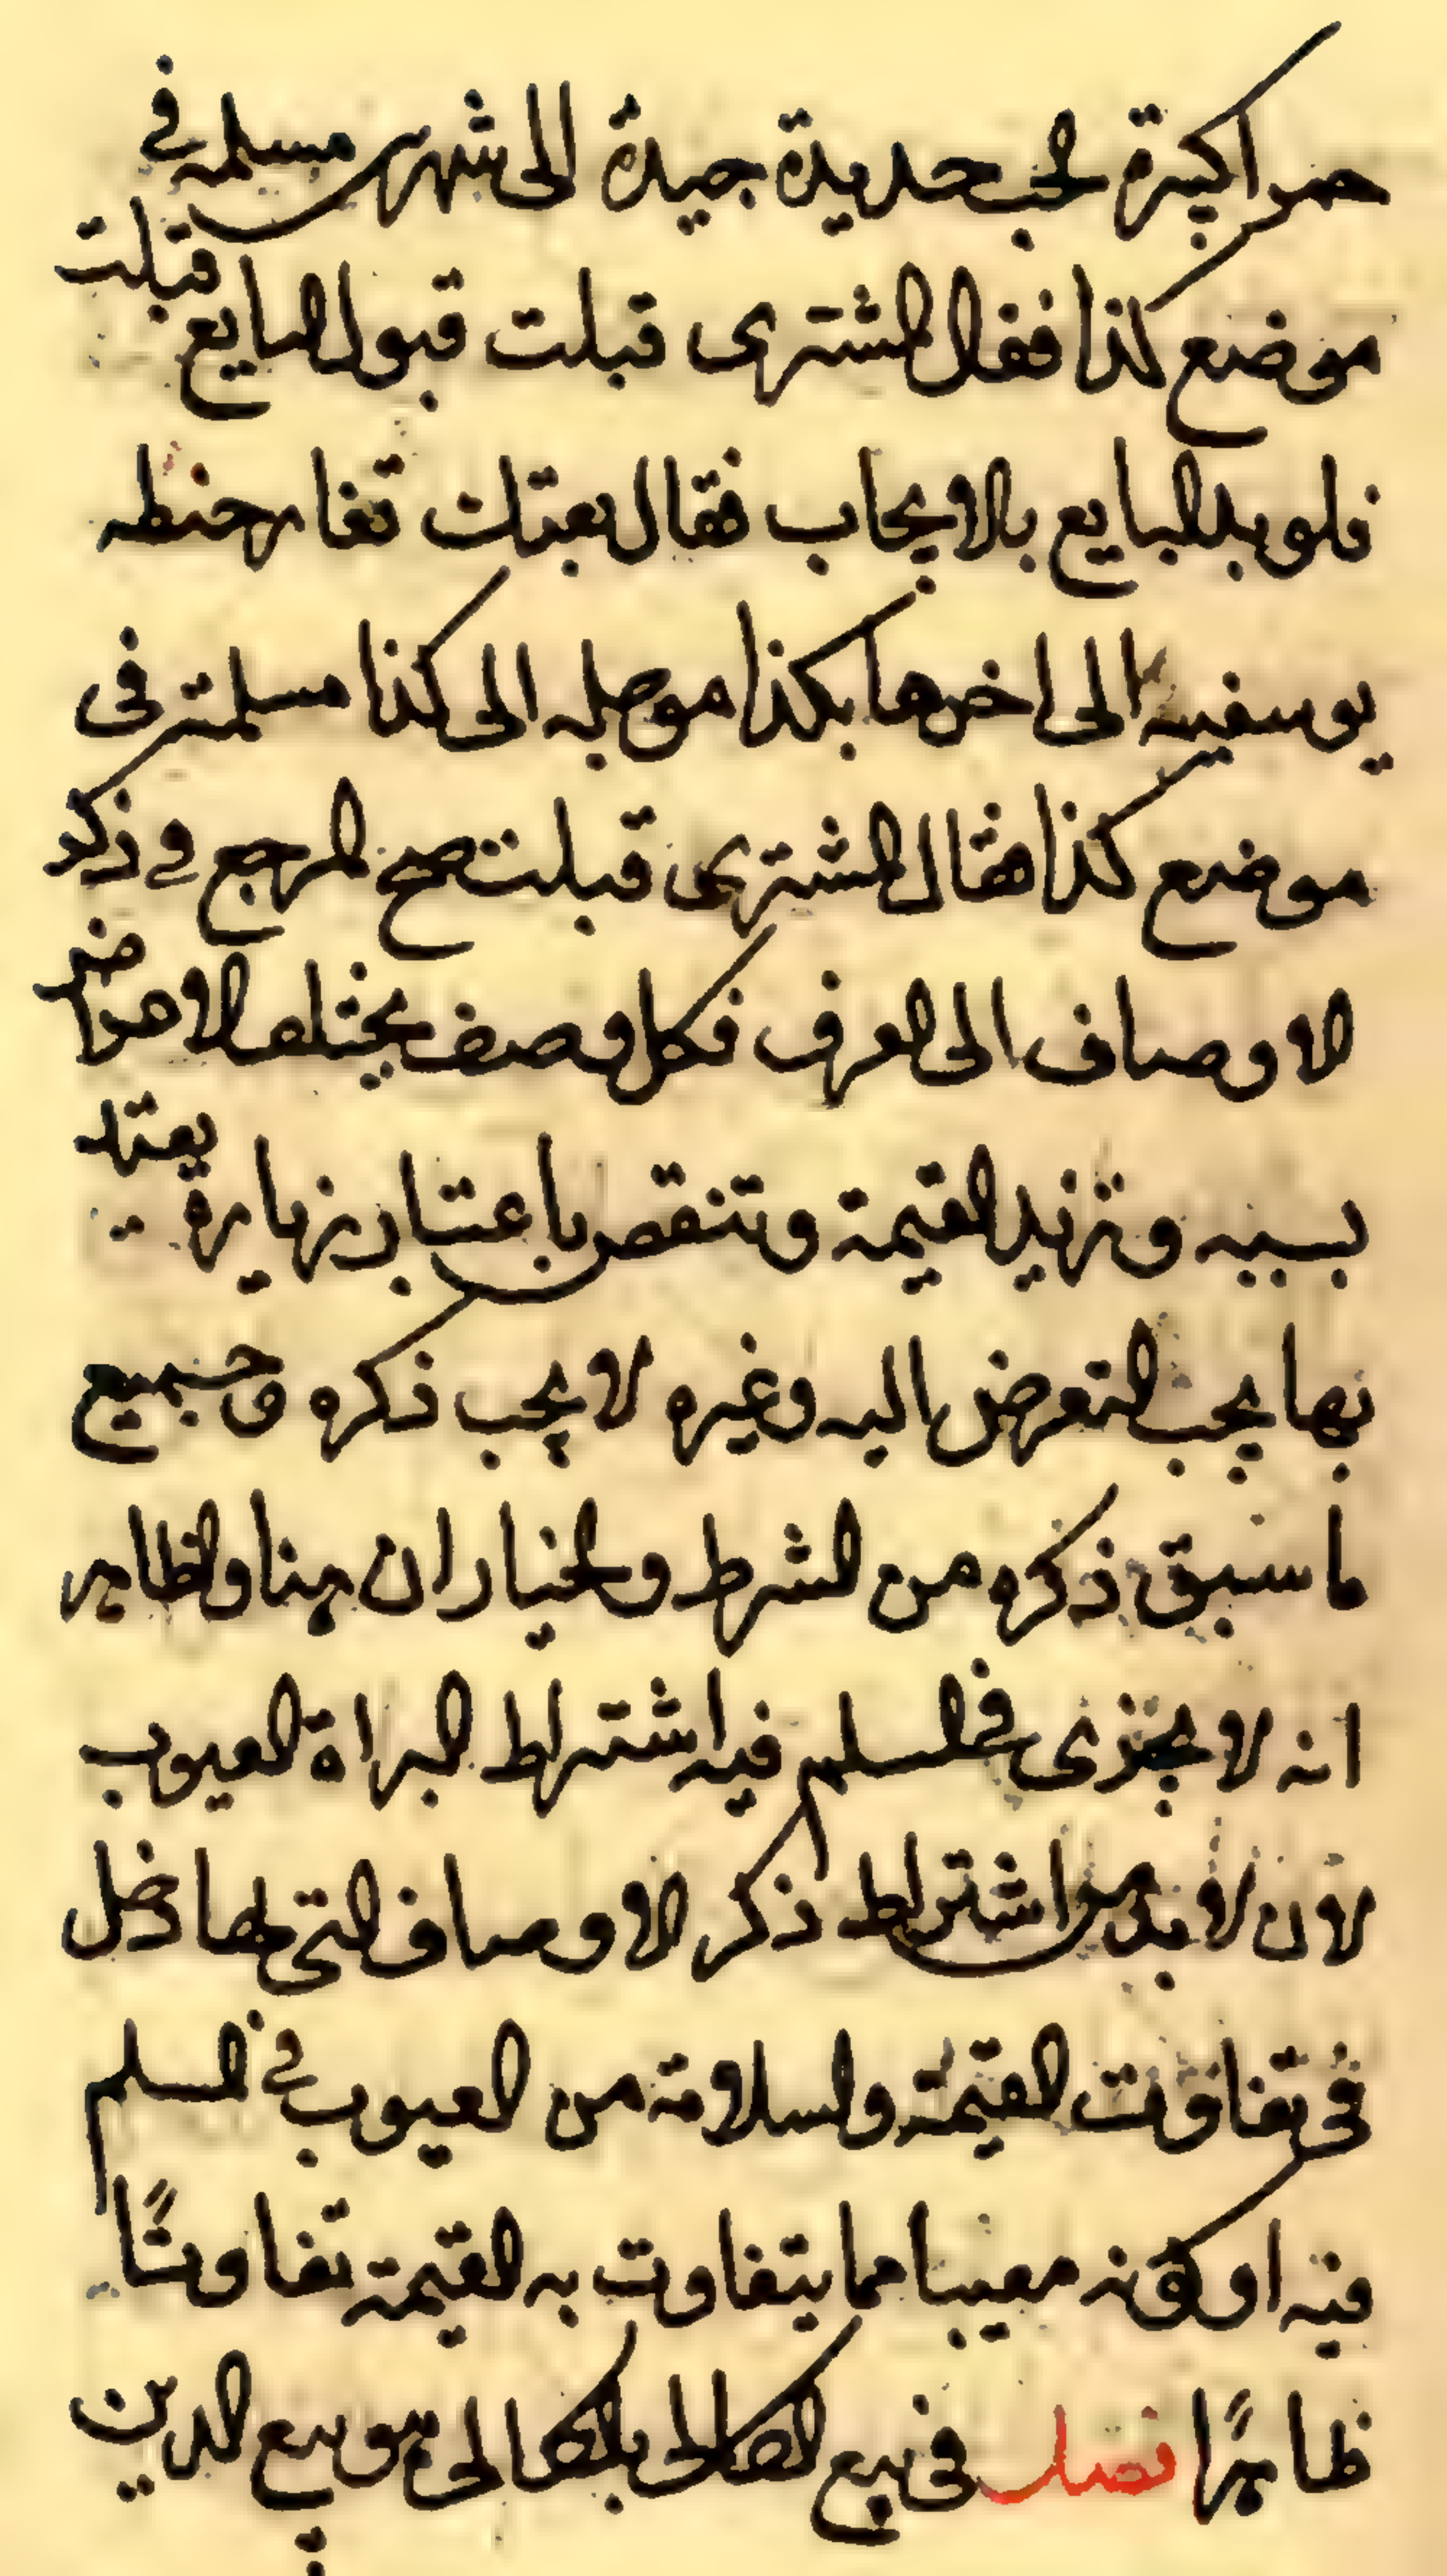 حمرا كبيرة الحب حديدة جيدة الى شهر مسلمه في
موضع كذا فقال المشتري قبلت قبول البايع قبلت
فلو بدا البايع بالايجاب فقال بعتك تغار حنطه
يوسفيه الى اخرها بكذا موجله الى كذا مسلمة في
موضع كذا فقال المشتري قبلت صح المرجع في ذكر
الاوصاف الى العرف فكل وصف يختلف الاعواض
بسببه وتزيد القيمة وتنقص باعتبار زيادة يعتد
بها يجب التعرض اليه وغيره لا يجب ذكره وجميع
ما سبق ذكره من الشرط والخيار ان هنا والظاهر
انه لا يجزى في السلم فيه اشتراط البراة العيوب
لان لا بد من اشتراط ذكر الاوصاف التي لها دخل
في تفاوت القيمة والسلامة من العيوب في المسلم
فيه او كونه معيبا مما يتفاوت به القيمة تفاوتًا
ظاهرًا فصل في بيع الكالى بالكالى هو بيع الدين